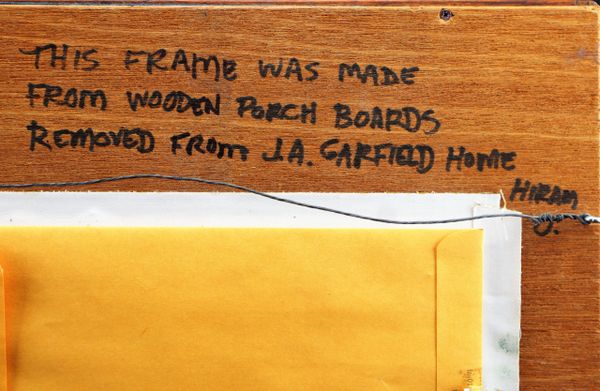 THIS FRAME WAS MADE
FROM WOODEN PORCH BOARDS
REMOVED FROM J.A. GARFIELD HOME
HIRAM
O.